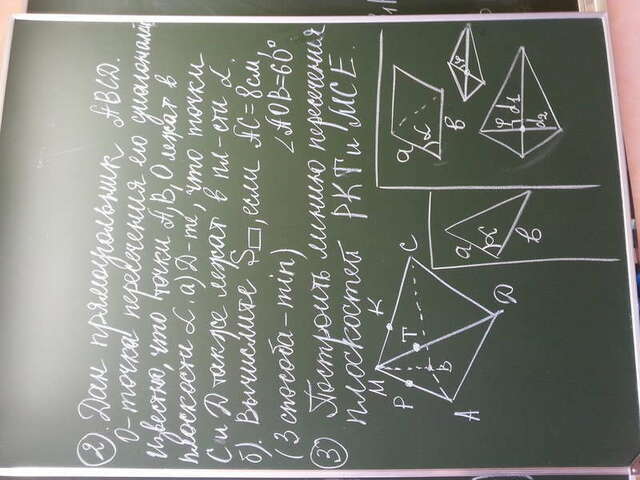 ②. Дан прямоугольник ABCD.
O-точка пересечения его диагоналей
известно, что точки A, B, O лежат в
плоскости α. а) Д-те, что точки
C и D также лежат в пл-сти α.
б). Вычислите S▭, если AC = 8см,
(3 способа - min) ∠AOB=60°
③ Построить линию пересечения
плоскостей PKT и MCE.
M K
P T C
B
A
D
a α
b
a α
b
φ
φ d₁
d₂